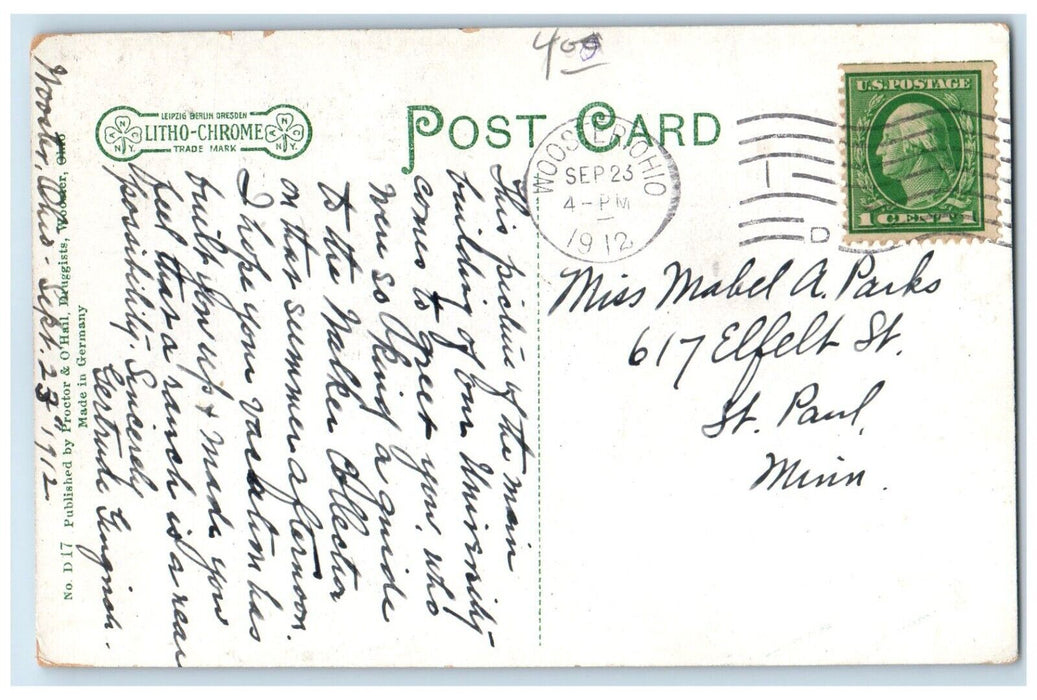 400
LEIPZIG BERLIN DRESDEN
LITHO-CHROME
TRADE MARK
N.Y.
N.Y.
POST CARD
WOOSTER, OHIO
SEP 23
4-PM
1912
D
U.S. POSTAGE
1 CENT 1
Miss Mabel A. Parks
617 Elfelt St.
St. Paul,
Minn.
This picture of the main
building of our University
comes to greet you, who
were so kind a guide
to the Walker Collection
on that summer afternoon.
I hope your vacation has
built you up & made you
feel that a ranch is a real
possibility. Sincerely
Gertrude
Wooster, Ohio - Sept. 23" 1912
No. D 17 Published by Proctor & O'Hail, Druggists, Wooster, Ohio
Made in Germany